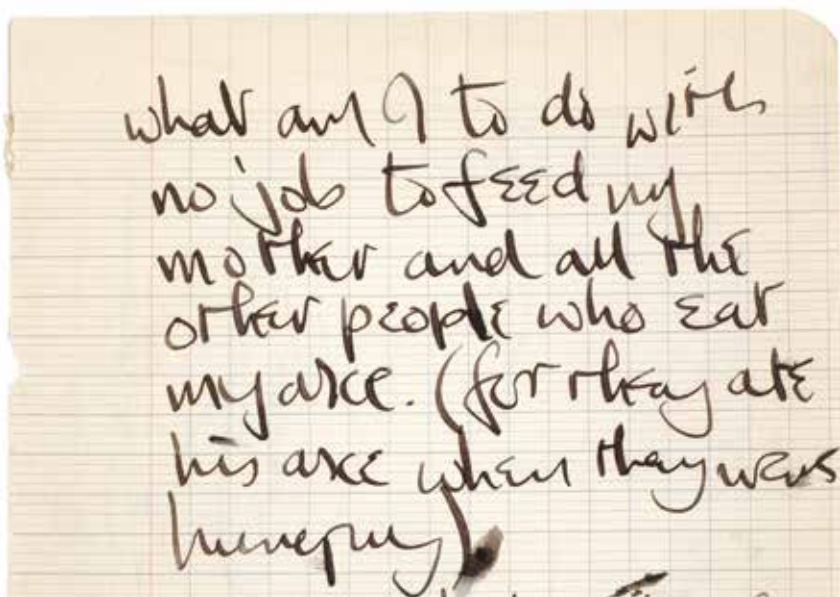 what am I to do with
no job to feed my
mother and all the
other people who eat
my arse. (for thay ate
his arse when thay were
hungry)